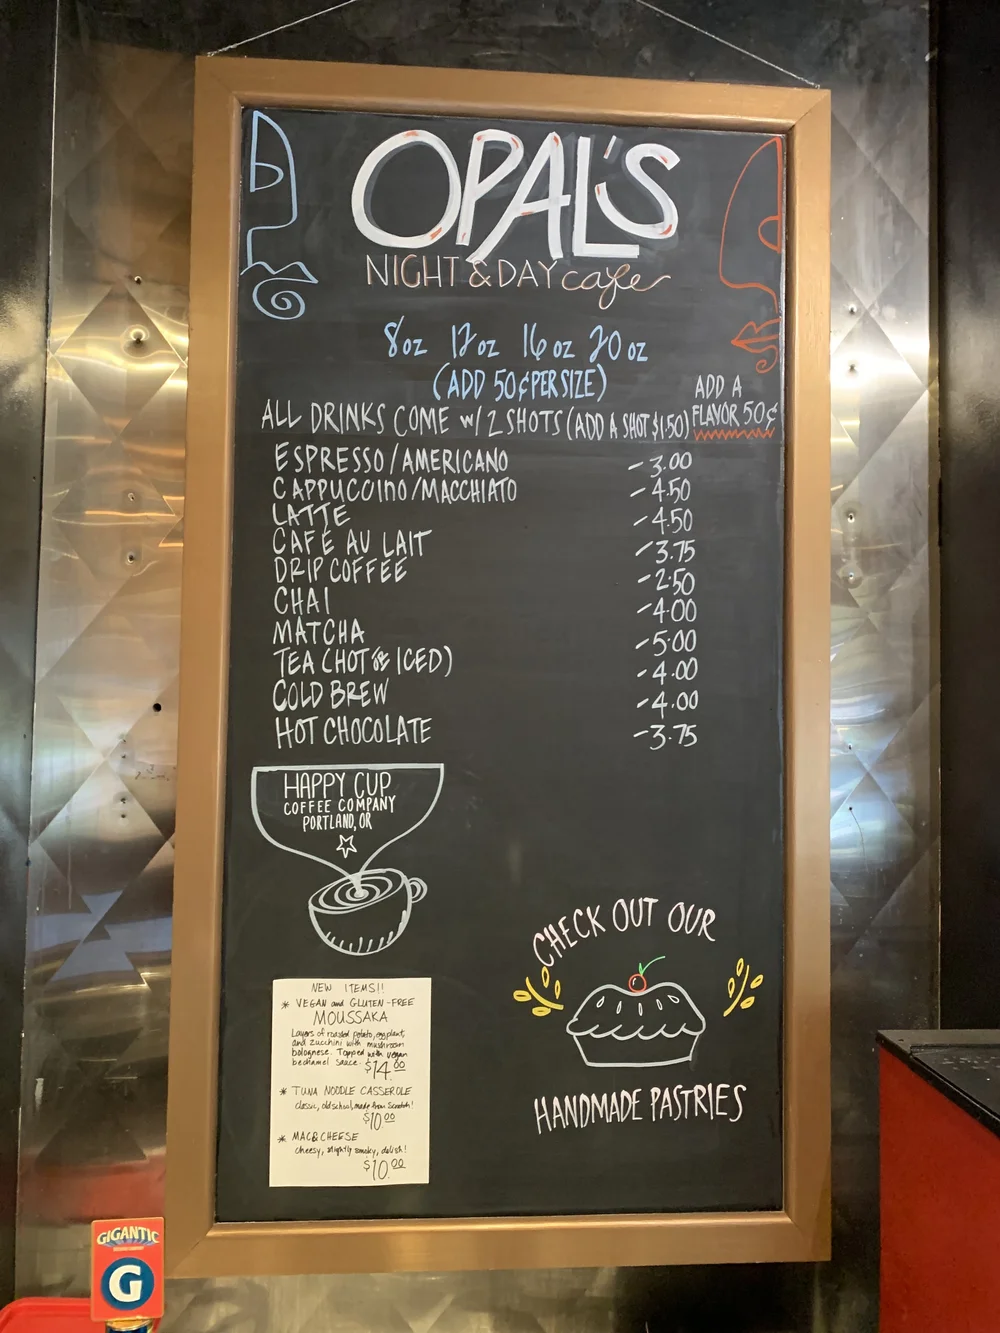 OPAL'S
NIGHT & DAY cafe
8oz 12oz 16oz 20oz
(ADD 50¢ PER SIZE)
ALL DRINKS COME w/ 2 SHOTS (ADD A SHOT $1.50)
ADD A
FLAVOR 50¢
ESPRESSO/AMERICANO -3.00
CAPPUCCINO/MACCHIATO -4.50
LATTE -4.50
CAFÉ AU LAIT -3.75
DRIP COFFEE -2.50
CHAI -4.00
MATCHA -5.00
TEA (HOT or ICED) -4.00
COLD BREW -4.00
HOT CHOCOLATE -3.75
HAPPY CUP
COFFEE COMPANY
PORTLAND, OR
CHECK OUT OUR
HANDMADE PASTRIES
NEW ITEMS!!
* VEGAN and GLUTEN-FREE
MOUSSAKA
Layers of roasted potato, eggplant,
and zucchini with mushroom
bolognese. Topped with vegan
bechamel sauce. $14.00
* TUNA NOODLE CASSEROLE
classic, old school, made from scratch!
$10.00
* MAC & CHEESE
cheesy, slightly smoky, delish!
$10.00
GIGANTIC
G